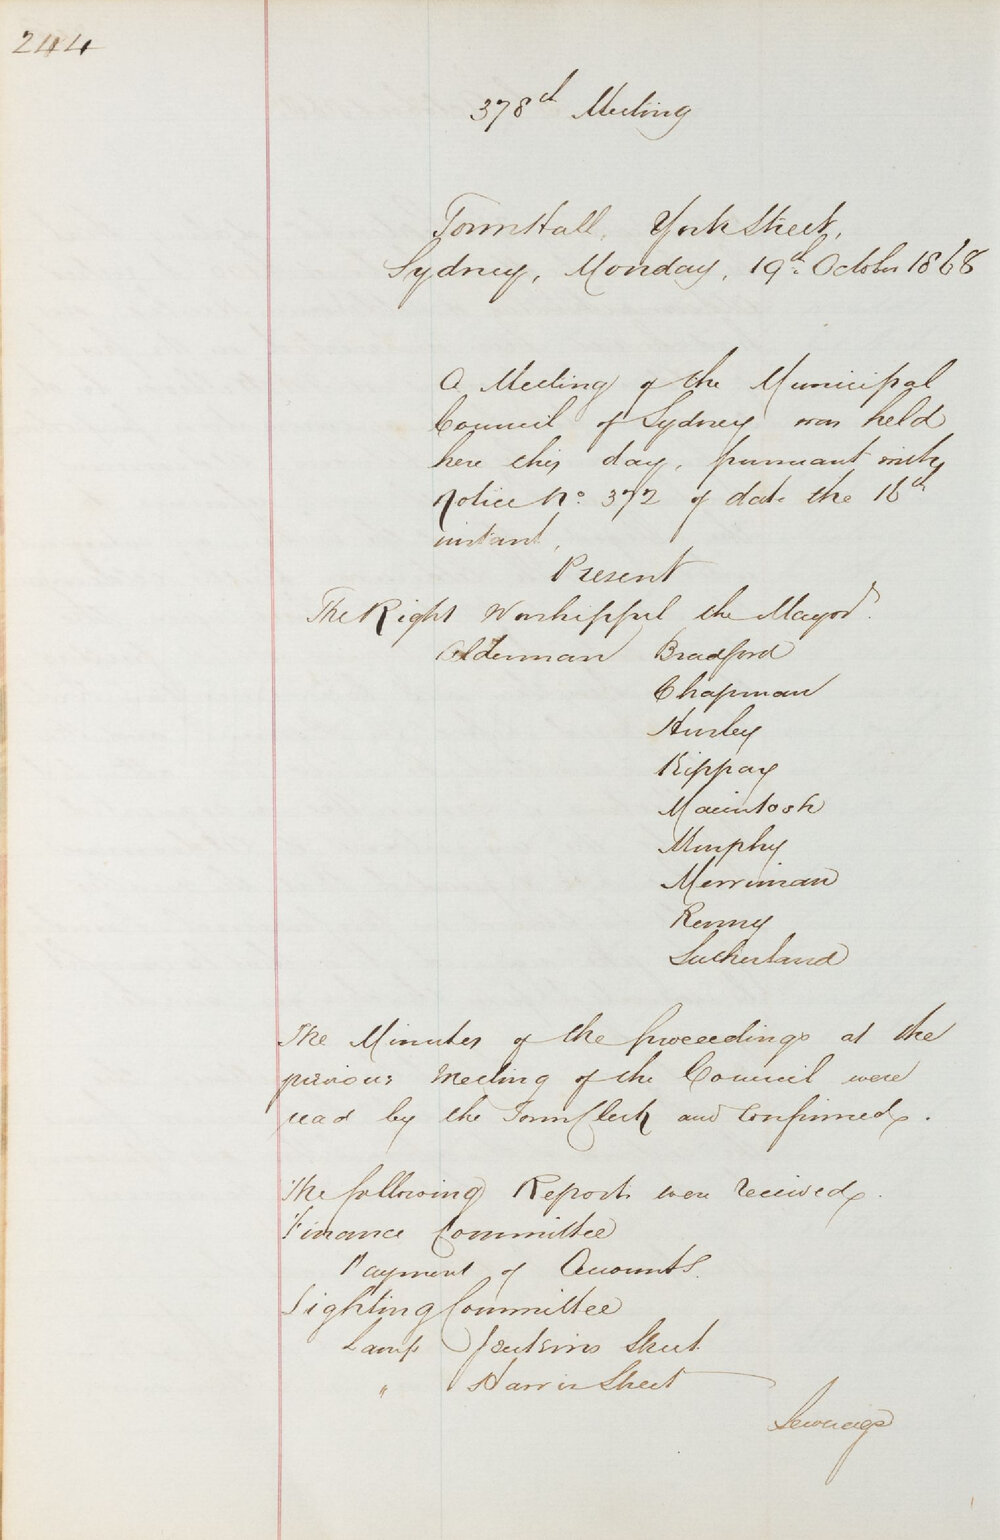 244
378th Meeting
Town Hall, York Street,
Sydney, Monday, 19th October 1868
A Meeting of the Municipal
Council of Sydney was held
here this day, pursuant with
Notice No. 372 of date the 16th
instant,
Present
The Right Worshipful the Mayor.
Alderman Bradford
Chapman
Hurley
Kippax
Macintosh
Murphy
Merriman
Renny
Sutherland
The Minutes of the proceedings at the
previous Meeting of the Council were
read by the Town Clerk and Confirmed.
The following Reports were received.
Finance Committee
Payment of Accounts.
Lighting Committee
Lamp Jenkins Street
" Harris Street
Sewerage